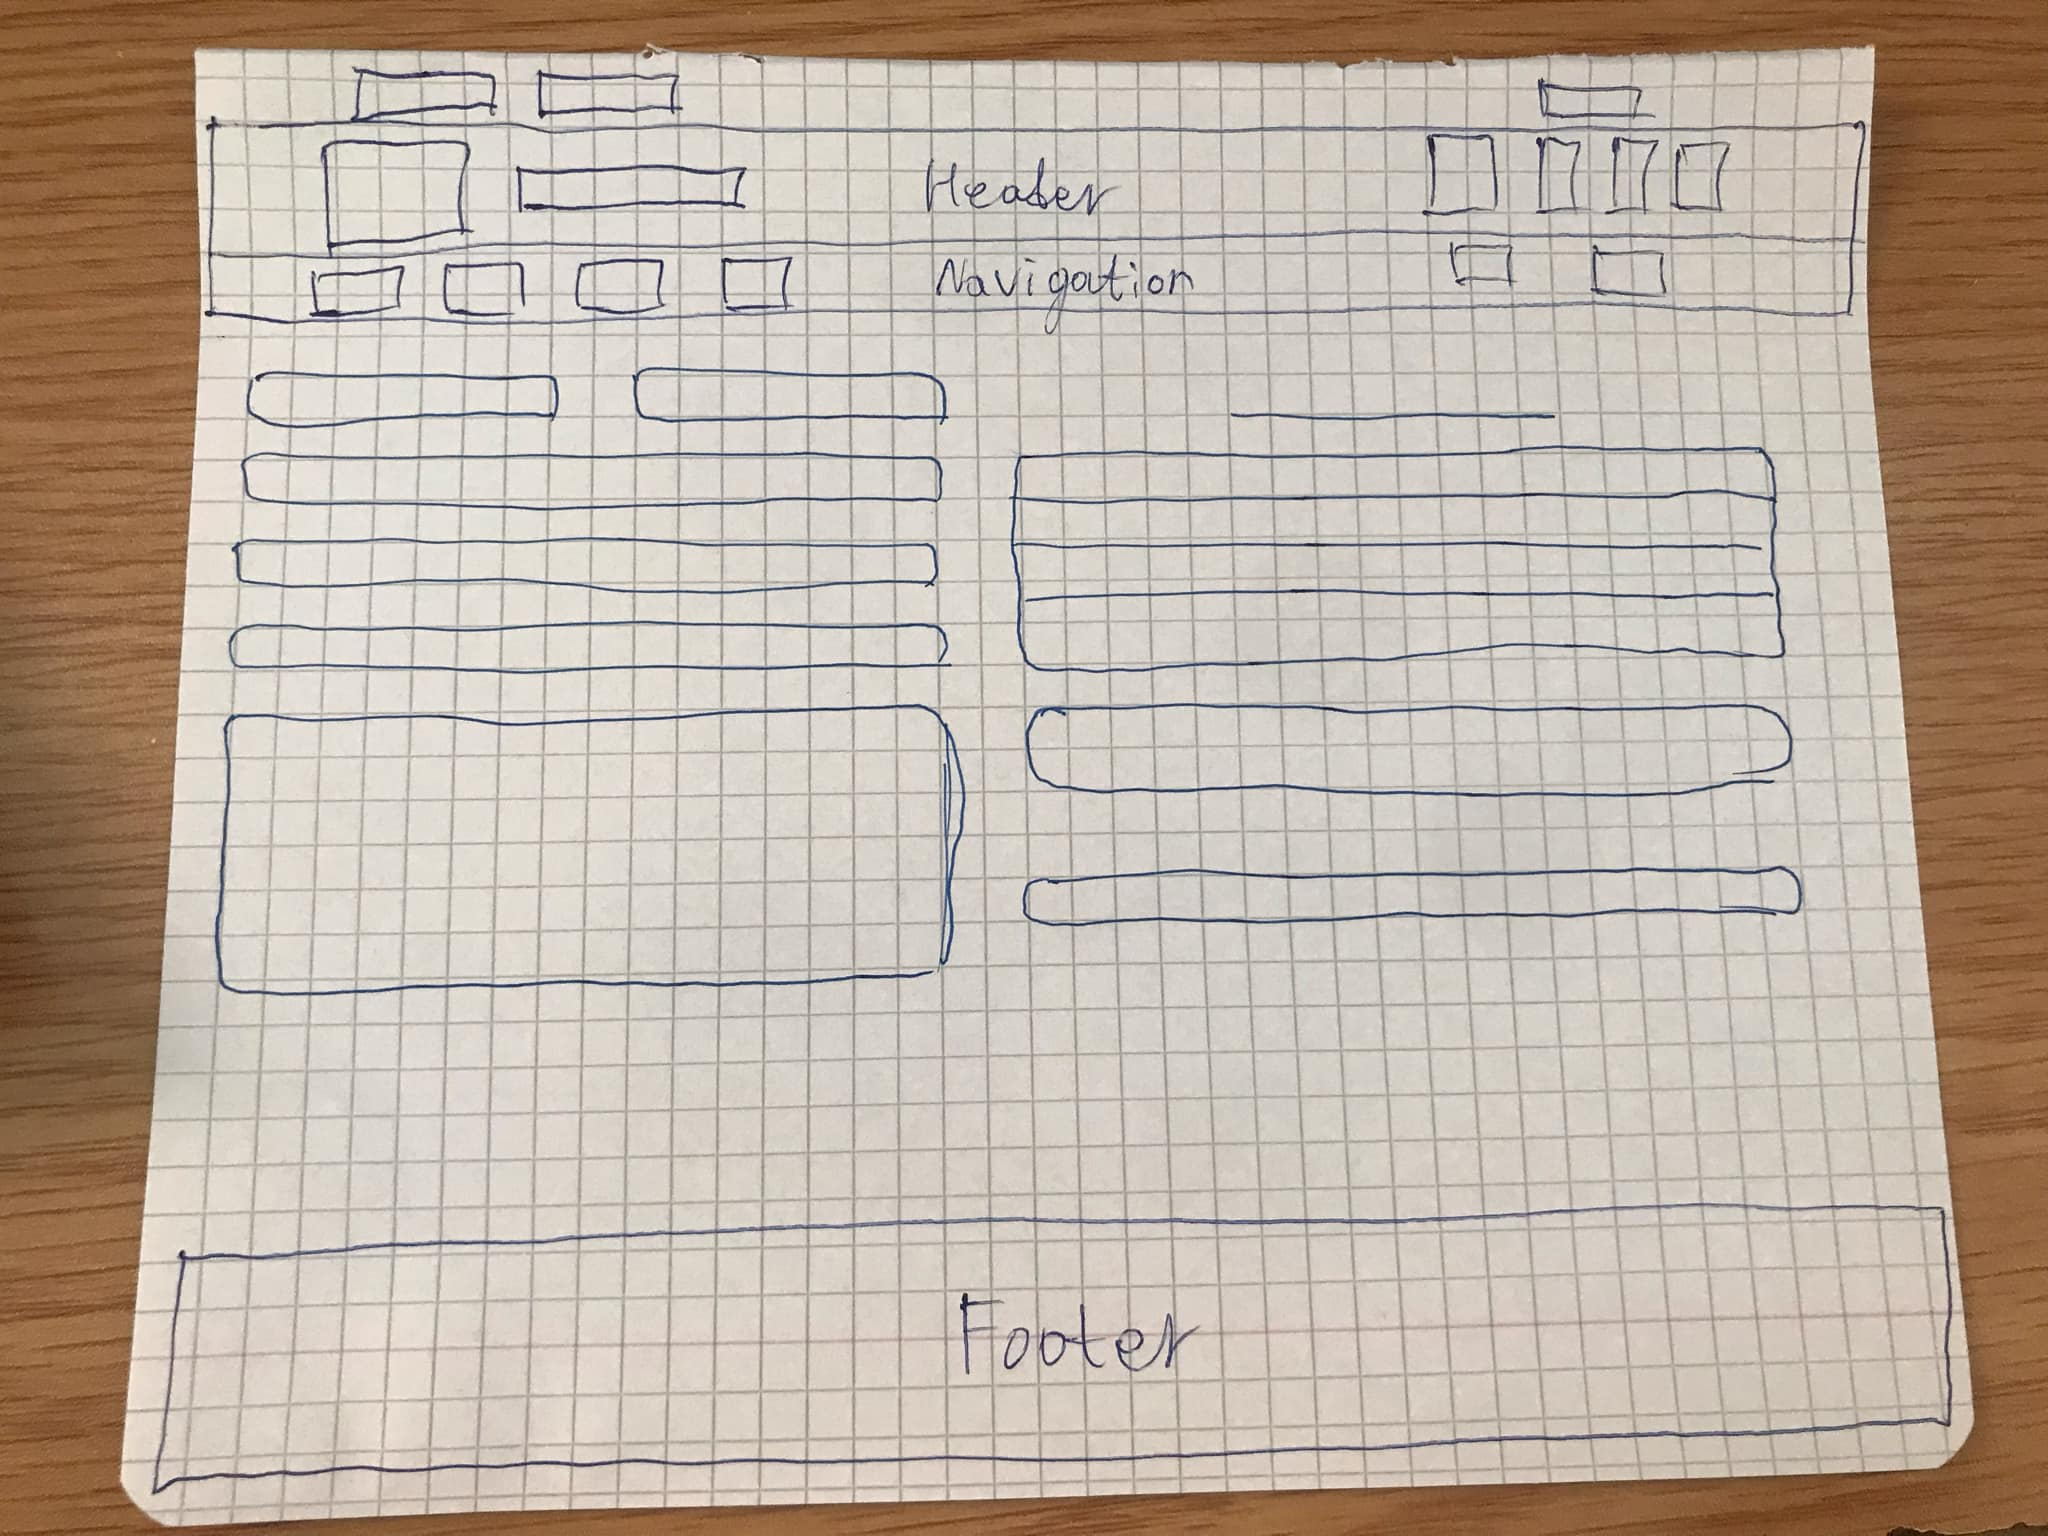 Header
Navigation
Footer